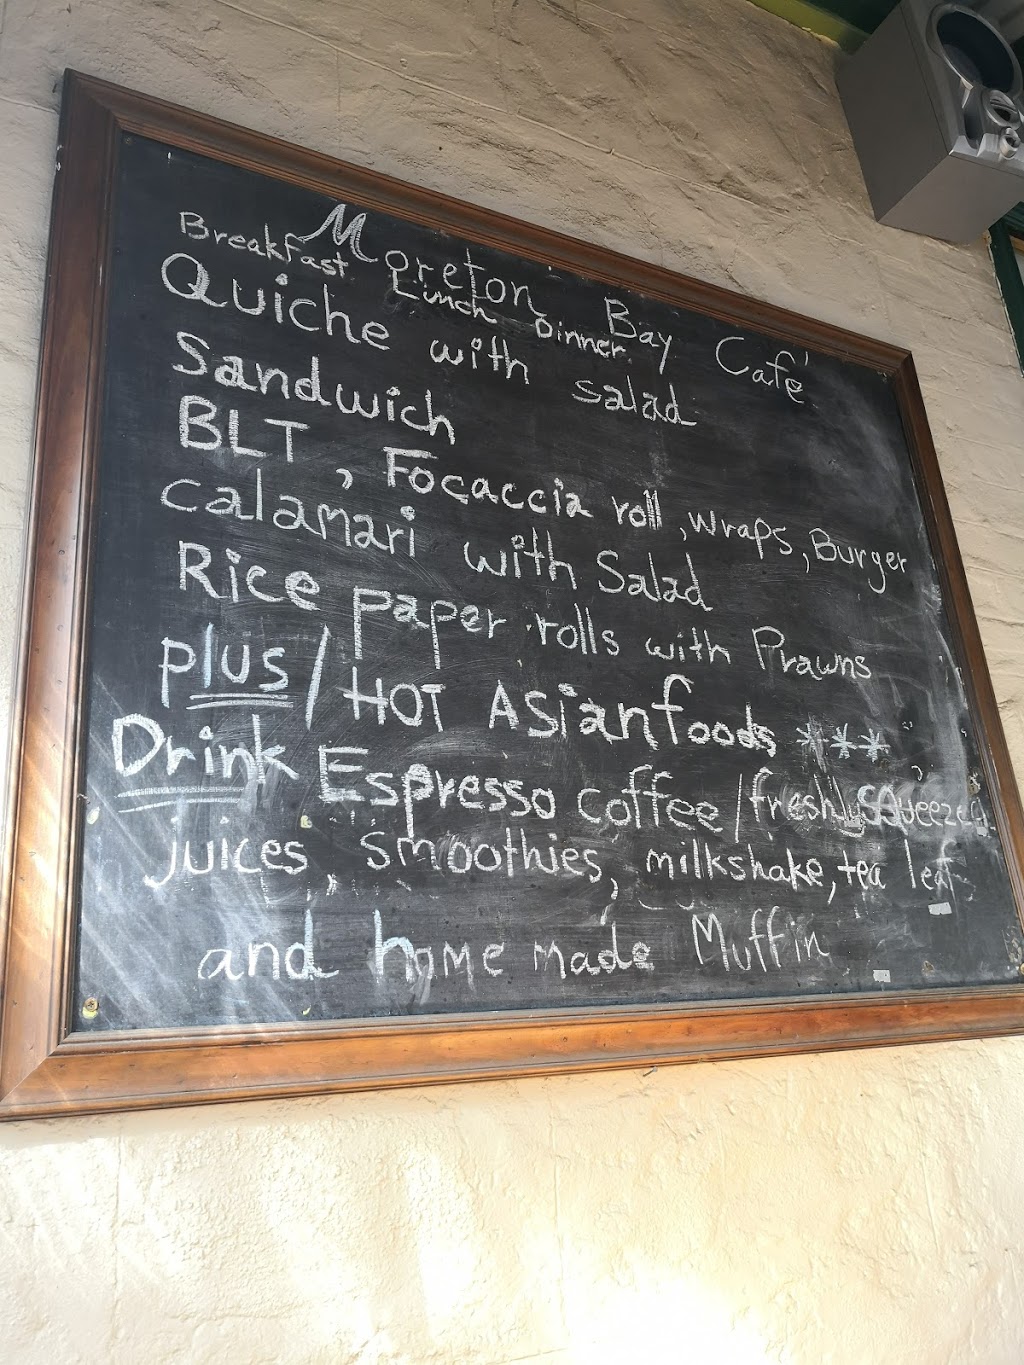 Moreton Bay Café
Breakfast Lunch Dinner.
Quiche with salad
Sandwich
BLT, Focaccia roll, wraps, Burger
calamari with Salad
Rice paper rolls with Prawns
plus / HOT Asian foods ***
Drink Espresso coffee / freshly squeezed
juices, smoothies, milkshake, tea leaf
and home made Muffin